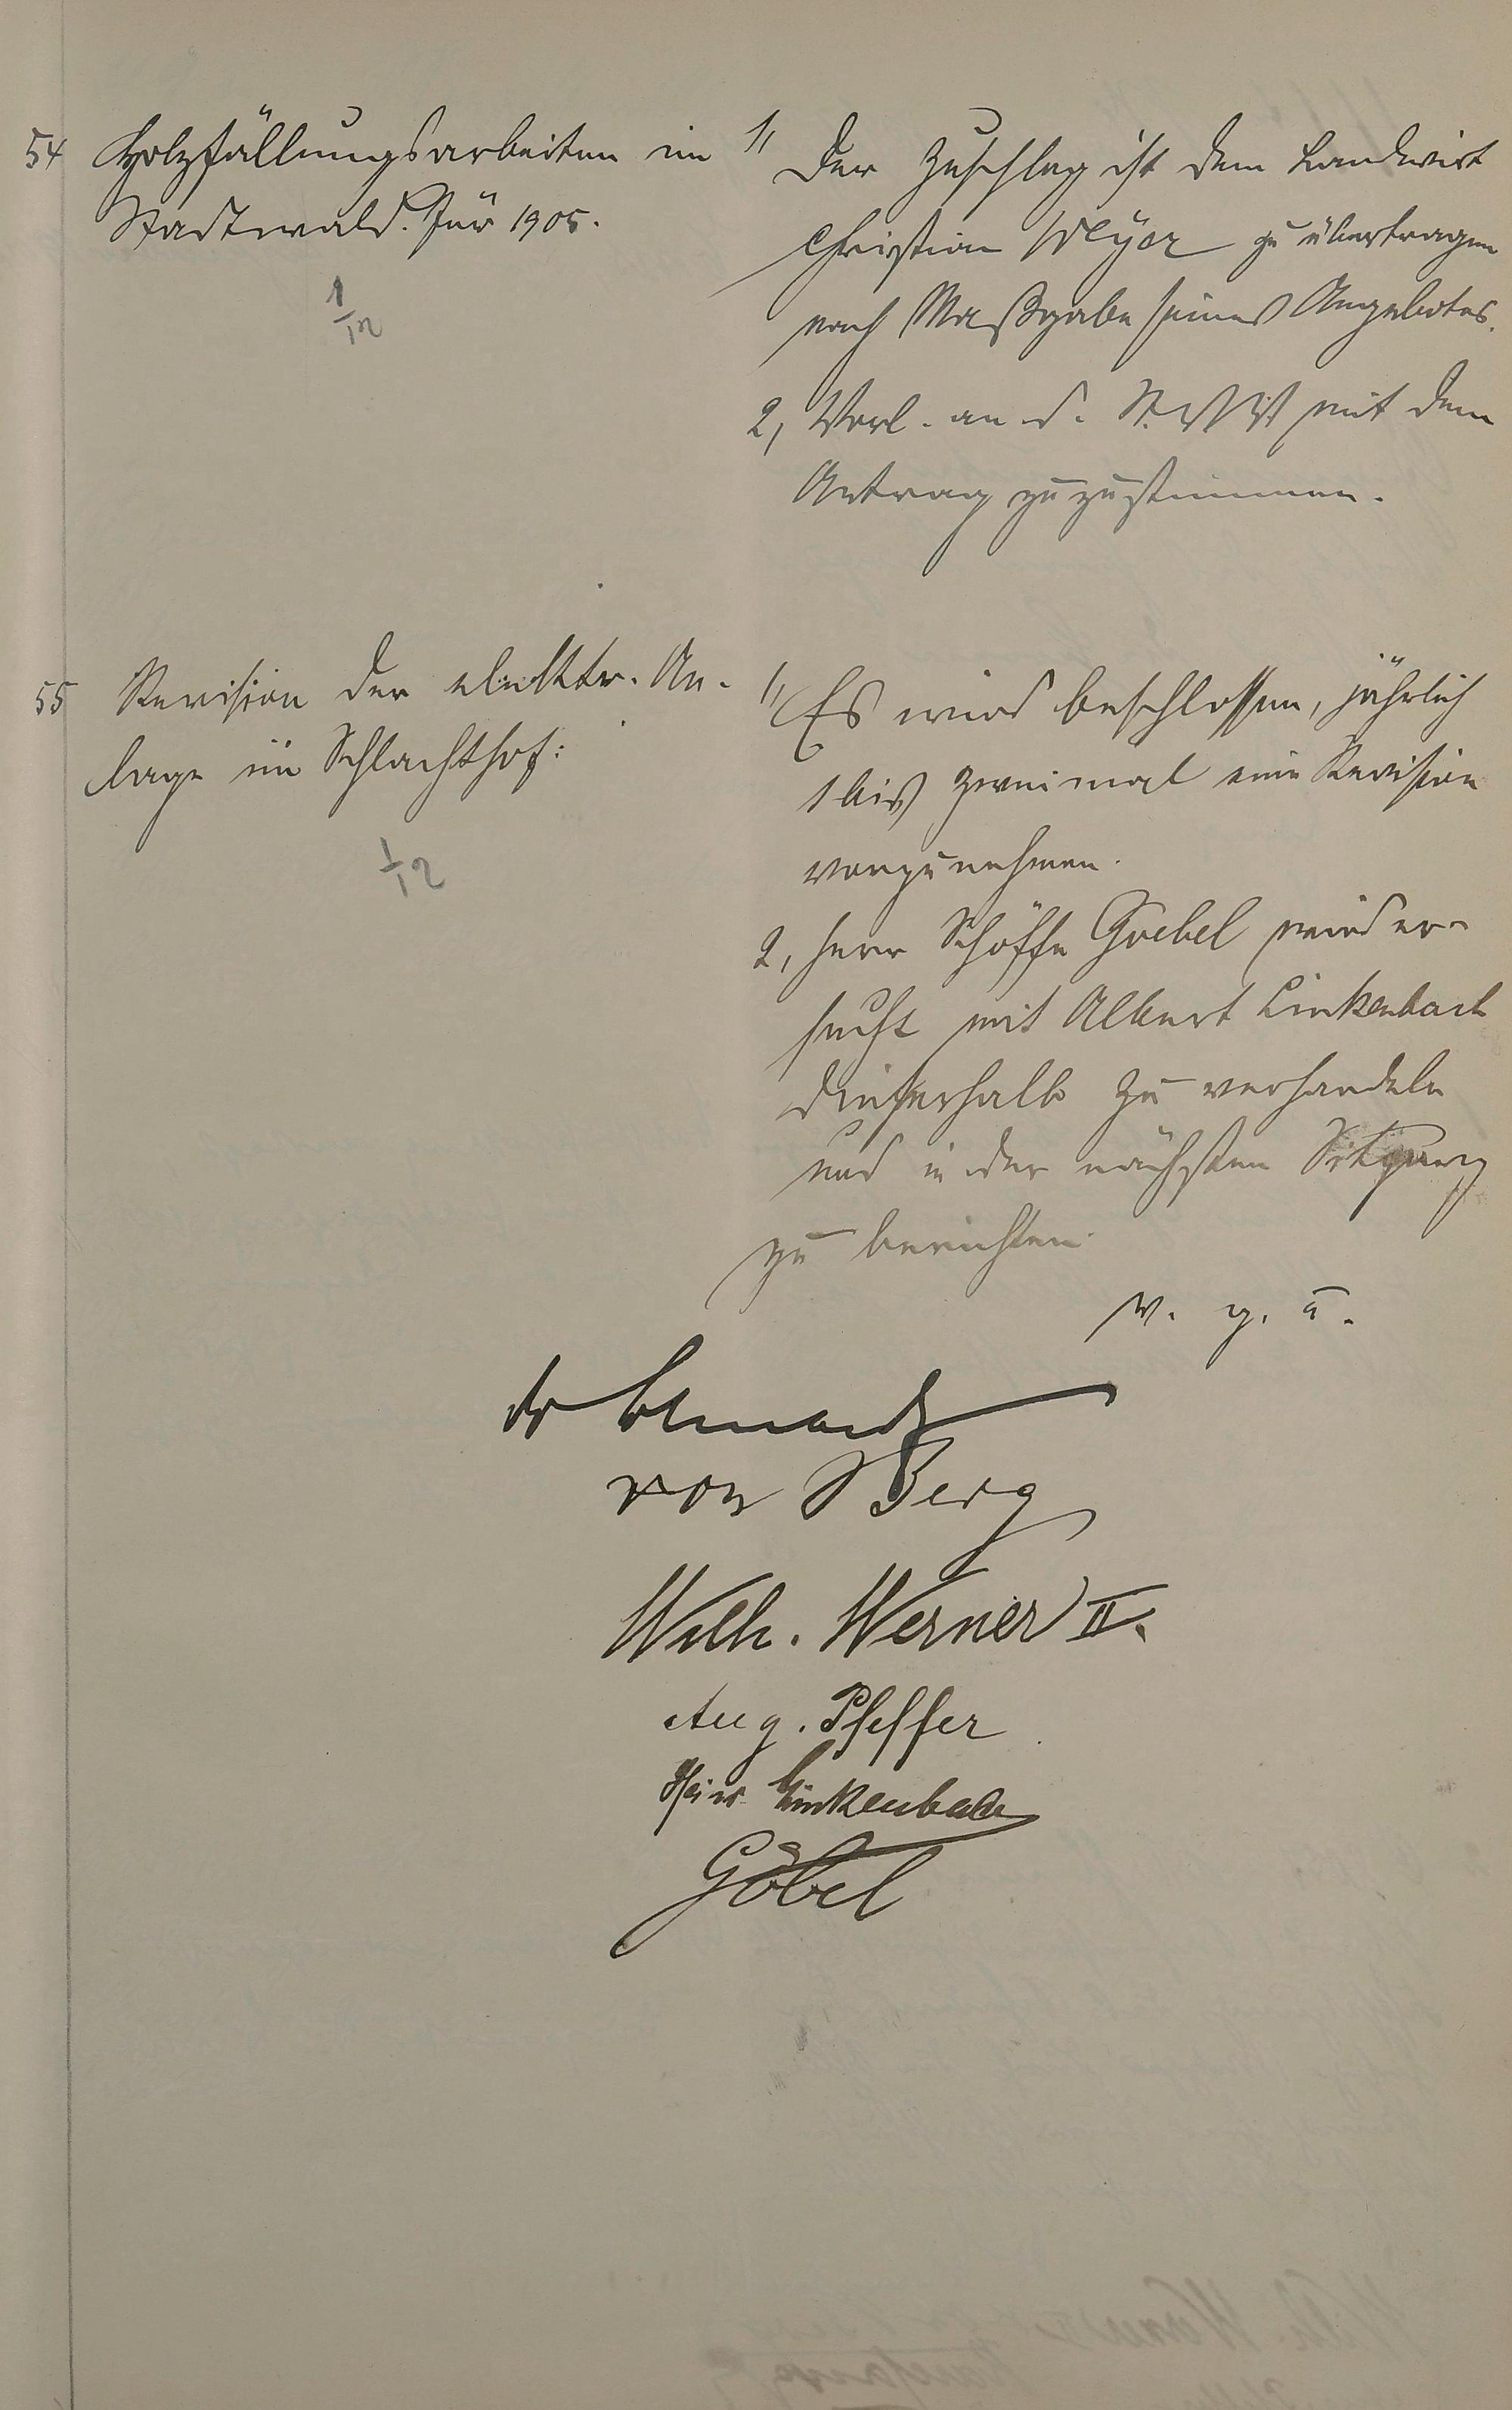 54 Holzfällungsarbeiten im
Stadtwald für 1905.
1/12
1, Der Zuschlag ist dem Landwirt
Christian Meyer zu übertragen
nach Maßgabe seines Angebotes.
2, Vorl. an d. St.V.V. mit dem
Antrag zuzustimmen.
55 Revision der elektr. An-
lage im Schlachthof:
1/12
1, Es wird beschlossen, jährlich
1 bis zweimal eine Revision
vorzunehmen.
2, Herr Schöffe Goebel wird er-
sucht mit Albert Linkenbach
dieserhalb zu verhandeln
und in der nächsten Sitzung
zu berichten.
v. g. u.
Dr
von Berg
Wilh. Werner II.
Aug. Pfeffer
Heinr. Linkenbach
Göbel